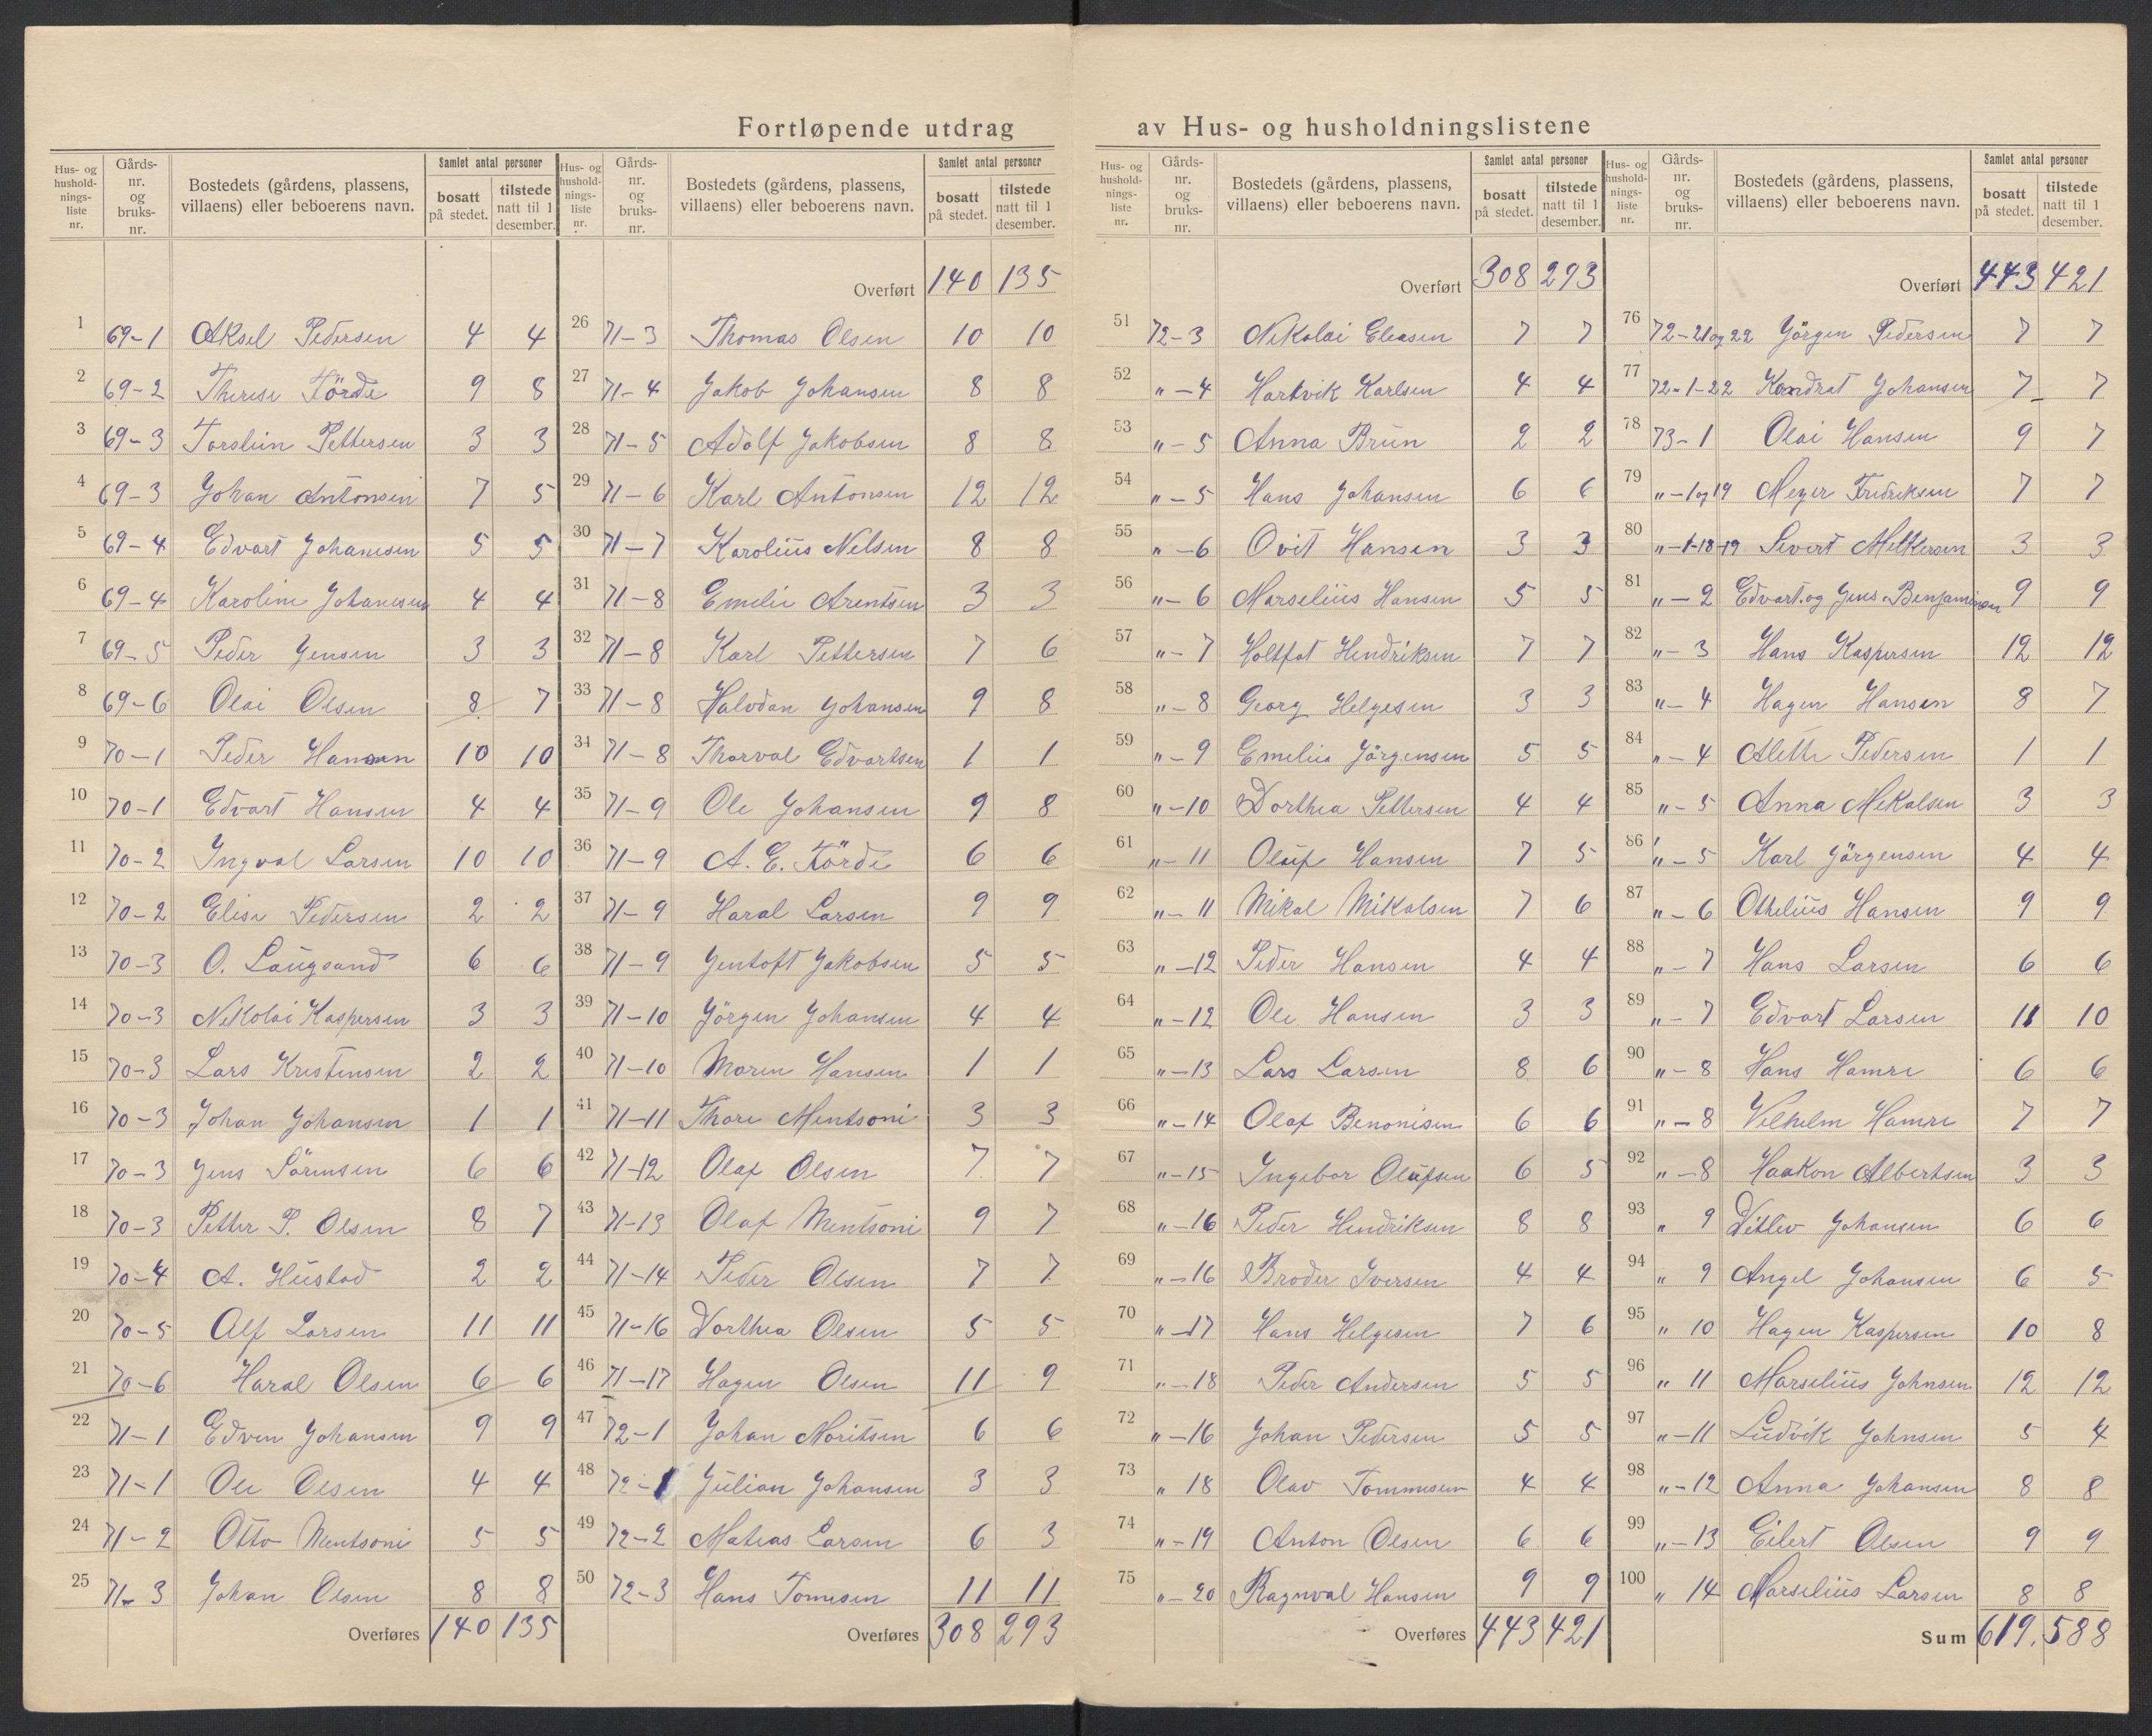 Fortløpende utdrag av Hus- og husholdningslistene
Hus- og husholdnings-liste nr. | Gårds-nr. og bruks-nr. | Bostedets (gårdens, plassens, villaens) eller beboerens navn. | Samlet antal personer bosatt på stedet. | tilstede natt til 1 desember.
1 69-1 Aksel Pedersen 4 4
2 69-2 Therese Förde 9 8
3 69-3 Torstein Pettersen 3 3
4 69-3 Johan Antonsen 7 5
5 69-4 Edvart Johansen 5 5
6 69-4 Karoline Johansen 4 4
7 69-5 Peder Jensen 3 3
8 69-6 Olai Olsen 8 7
9 70-1 Peder Hansen 10 10
10 70-1 Edvart Hansen 4 4
11 70-2 Ingval Larsen 10 10
12 70-2 Elise Pedersen 2 2
13 70-3 O. Laugsand 6 6
14 70-3 Nekolai Kaspersen 3 3
15 70-3 Lars Kristensen 2 2
16 70-3 Johan Johansen 1 1
17 70-3 Jens Sörensen 6 6
18 70-3 Petter P. Olsen 8 7
19 70-4 A. Hustad 2 2
20 70-5 Alf Larsen 11 11
21 70-6 Haral Olsen 6 6
22 71-1 Edven Johansen 9 9
23 71-1 Ole Olsen 4 4
24 71-2 Otto Mentsoni 5 5
25 71-3 Johan Olsen 8 8
Overføres 140 135
Hus- og husholdnings-liste nr. | Gårds-nr. og bruks-nr. | Bostedets (gårdens, plassens, villaens) eller beboerens navn. | Samlet antal personer bosatt på stedet. | tilstede natt til 1 desember.
Overført 140 135
26 71-3 Thomas Olsen 10 10
27 71-4 Jakob Johansen 8 8
28 71-5 Adolf Jakobsen 8 8
29 71-6 Karl Antonsen 12 12
30 71-7 Karolius Nelsen 8 8
31 71-8 Emelie Arentsen 3 3
32 71-8 Karl Pettersen 7 6
33 71-8 Halvdan Johansen 9 8
34 71-8 Thorval Edvartsen 1 1
35 71-9 Ole Johansen 9 8
36 71-9 A. E. Förde 6 6
37 71-9 Haral Larsen 9 9
38 71-9 Jentoft Jakobsen 5 5
39 71-10 Jörgen Johansen 4 4
40 71-10 Maren Hansen 1 1
41 71-11 Thore Mentsoni 3 3
42 71-12 Olaf Olsen 7 7
43 71-13 Olaf Mentsoni 9 7
44 71-14 Peder Olsen 7 7
45 71-16 Dorthea Olsen 5 5
46 71-17 Hagen Olsen 11 9
47 72-1 Johan Moritsen 6 6
48 72-1 Julian Johansen 3 3
49 72-2 Matias Larsen 6 3
50 72-3 Hans Tomesen 11 11
Overføres 308 293
Hus- og husholdnings-liste nr. | Gårds-nr. og bruks-nr. | Bostedets (gårdens, plassens, villaens) eller beboerens navn. | Samlet antal personer bosatt på stedet. | tilstede natt til 1 desember.
Overført 308 293
51 72-3 Nekolai Eleasen 7 7
52 " -4 Hartvik Karlsen 4 4
53 " -5 Anna Brun 2 2
54 " -5 Hans Johansen 6 6
55 " -6 Ovit Hansen 3 3
56 " -6 Marselius Hansen 5 5
57 " -7 Holtfat Hendriksen 7 7
58 " -8 Georg Helgesen 3 3
59 " -9 Emelie Jörgensen 5 5
60 " -10 Dorthea Pettersen 4 4
61 " -11 Oluf Hansen 7 5
62 " -11 Mikal Mikalsen 7 6
63 " -12 Peder Hansen 4 4
64 " -12 Ole Hansen 3 3
65 " -13 Lars Larsen 8 6
66 " -14 Olaf Benonisen 6 6
67 " -15 Ingebor Olufsen 6 5
68 " -16 Peder Hendriksen 8 8
69 " -16 Broder Iversen 4 4
70 " -17 Hans Helgesen 7 6
71 " -18 Peder Andersen 5 5
72 " -16 Johan Pedersen 5 5
73 " 18 Olav Tommesen 4 4
74 " -19 Anton Olsen 6 6
75 " -20 Ragnval Hansen 9 9
Overføres 443 421
Hus- og husholdnings-liste nr. | Gårds-nr. og bruks-nr. | Bostedets (gårdens, plassens, villaens) eller beboerens navn. | Samlet antal personer bosatt på stedet. | tilstede natt til 1 desember.
Overført 443 421
76 72-21og22 Jörgen Pedersen 7 7
77 72-1-22 Kondrat Johansen 7 7
78 73-1 Olai Hansen 9 7
79 " -1og19 Meyer Fredriksen 7 7
80 " -1-18-19 Sivert Melkersen 3 3
81 " -2 Edvart og Jens Benjaminsen 9 9
82 " -3 Hans Kaspersen 12 12
83 " -4 Hagen Hansen 8 7
84 " -4 Alethe Pedersen 1 1
85 " -5 Anna Mekalsen 3 3
86 " -5 Karl Jörgensen 4 4
87 " -6 Othelius Hansen 9 9
88 " -7 Hans Larsen 6 6
89 " -7 Edvart Larsen 11 10
90 " -8 Hans Hamre 6 6
91 " -8 Velhelm Hamre 7 7
92 " -8 Haakon Albertsen 3 3
93 " 9 Ditlev Johansen 6 6
94 " 9 Angel Johansen 6 5
95 " 10 Hagen Kaspersen 10 8
96 " 11 Marselius Johnsen 12 12
97 " -11 Ludvik Johnsen 5 4
98 " -12 Anna Johansen 8 8
99 " -13 Eilert Olsen 9 9
100 " 14 Marselius Larsen 8 8
Sum 619. 588